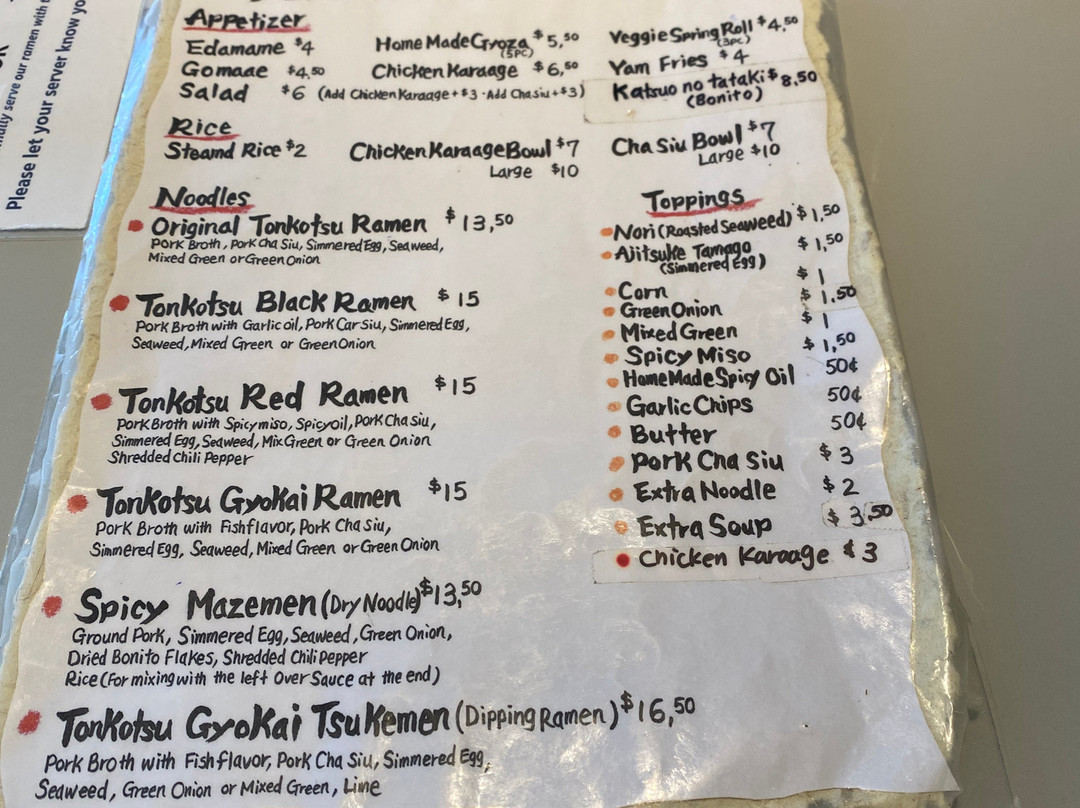 Please let your server know yo
Appetizer
Edamame $4
Gomaae $4,50
Salad $6 (Add Chicken Karaage+$3 ·Add Chasiu+$3)
Home Made Gyoza $5,50
(5PC)
Chicken Karaage $6,50
Veggie Spring Roll $4,50
(3pc)
Yam Fries $4
Katsuo no tataki $8,50
(Bonito)
Rice
Steamd Rice $2
Chicken Karaage Bowl $7
Large $10
Cha Siu Bowl $7
Large $10
Noodles
Original Tonkotsu Ramen $13,50
Pork Broth, Pork Cha Siu, Simmered Egg, Seaweed,
Mixed Green or Green Onion
Tonkotsu Black Ramen $15
Pork Broth with Garlic oil, Pork Car Siu, Simmered Egg,
Seaweed, Mixed Green or Green Onion
Tonkotsu Red Ramen $15
Pork Broth with Spicy miso, Spicy oil, Pork Cha Siu,
Simmered Egg, Seaweed, Mix Green or Green Onion
Shredded Chili Pepper
Tonkotsu Gyokai Ramen $15
Pork Broth with Fish flavor, Pork Cha Siu,
Simmered Egg, Seaweed, Mixed Green or Green Onion
Spicy Mazemen (Dry Noodle) $13,50
Ground Pork, Simmered Egg, Seaweed, Green Onion,
Dried Bonito Flakes, Shredded Chili Pepper
Rice (For mixing with the left over Sauce at the end)
Tonkotsu Gyokai Tsukemen (Dipping Ramen) $16,50
Pork Broth with Fish flavor, Pork Cha Siu, Simmered Egg,
Seaweed, Green Onion or Mixed Green, Lime
Toppings
Nori (Roasted Seaweed) $1,50
Ajitsuke Tamago $1,50
(Simmered Egg)
Corn $1
Green Onion $1.50
Mixed Green $1
Spicy Miso $1,50
Home Made Spicy Oil 50¢
Garlic Chips 50¢
Butter 50¢
Pork Cha Siu $3
Extra Noodle $2
Extra Soup $3.50
Chicken Karaage $3